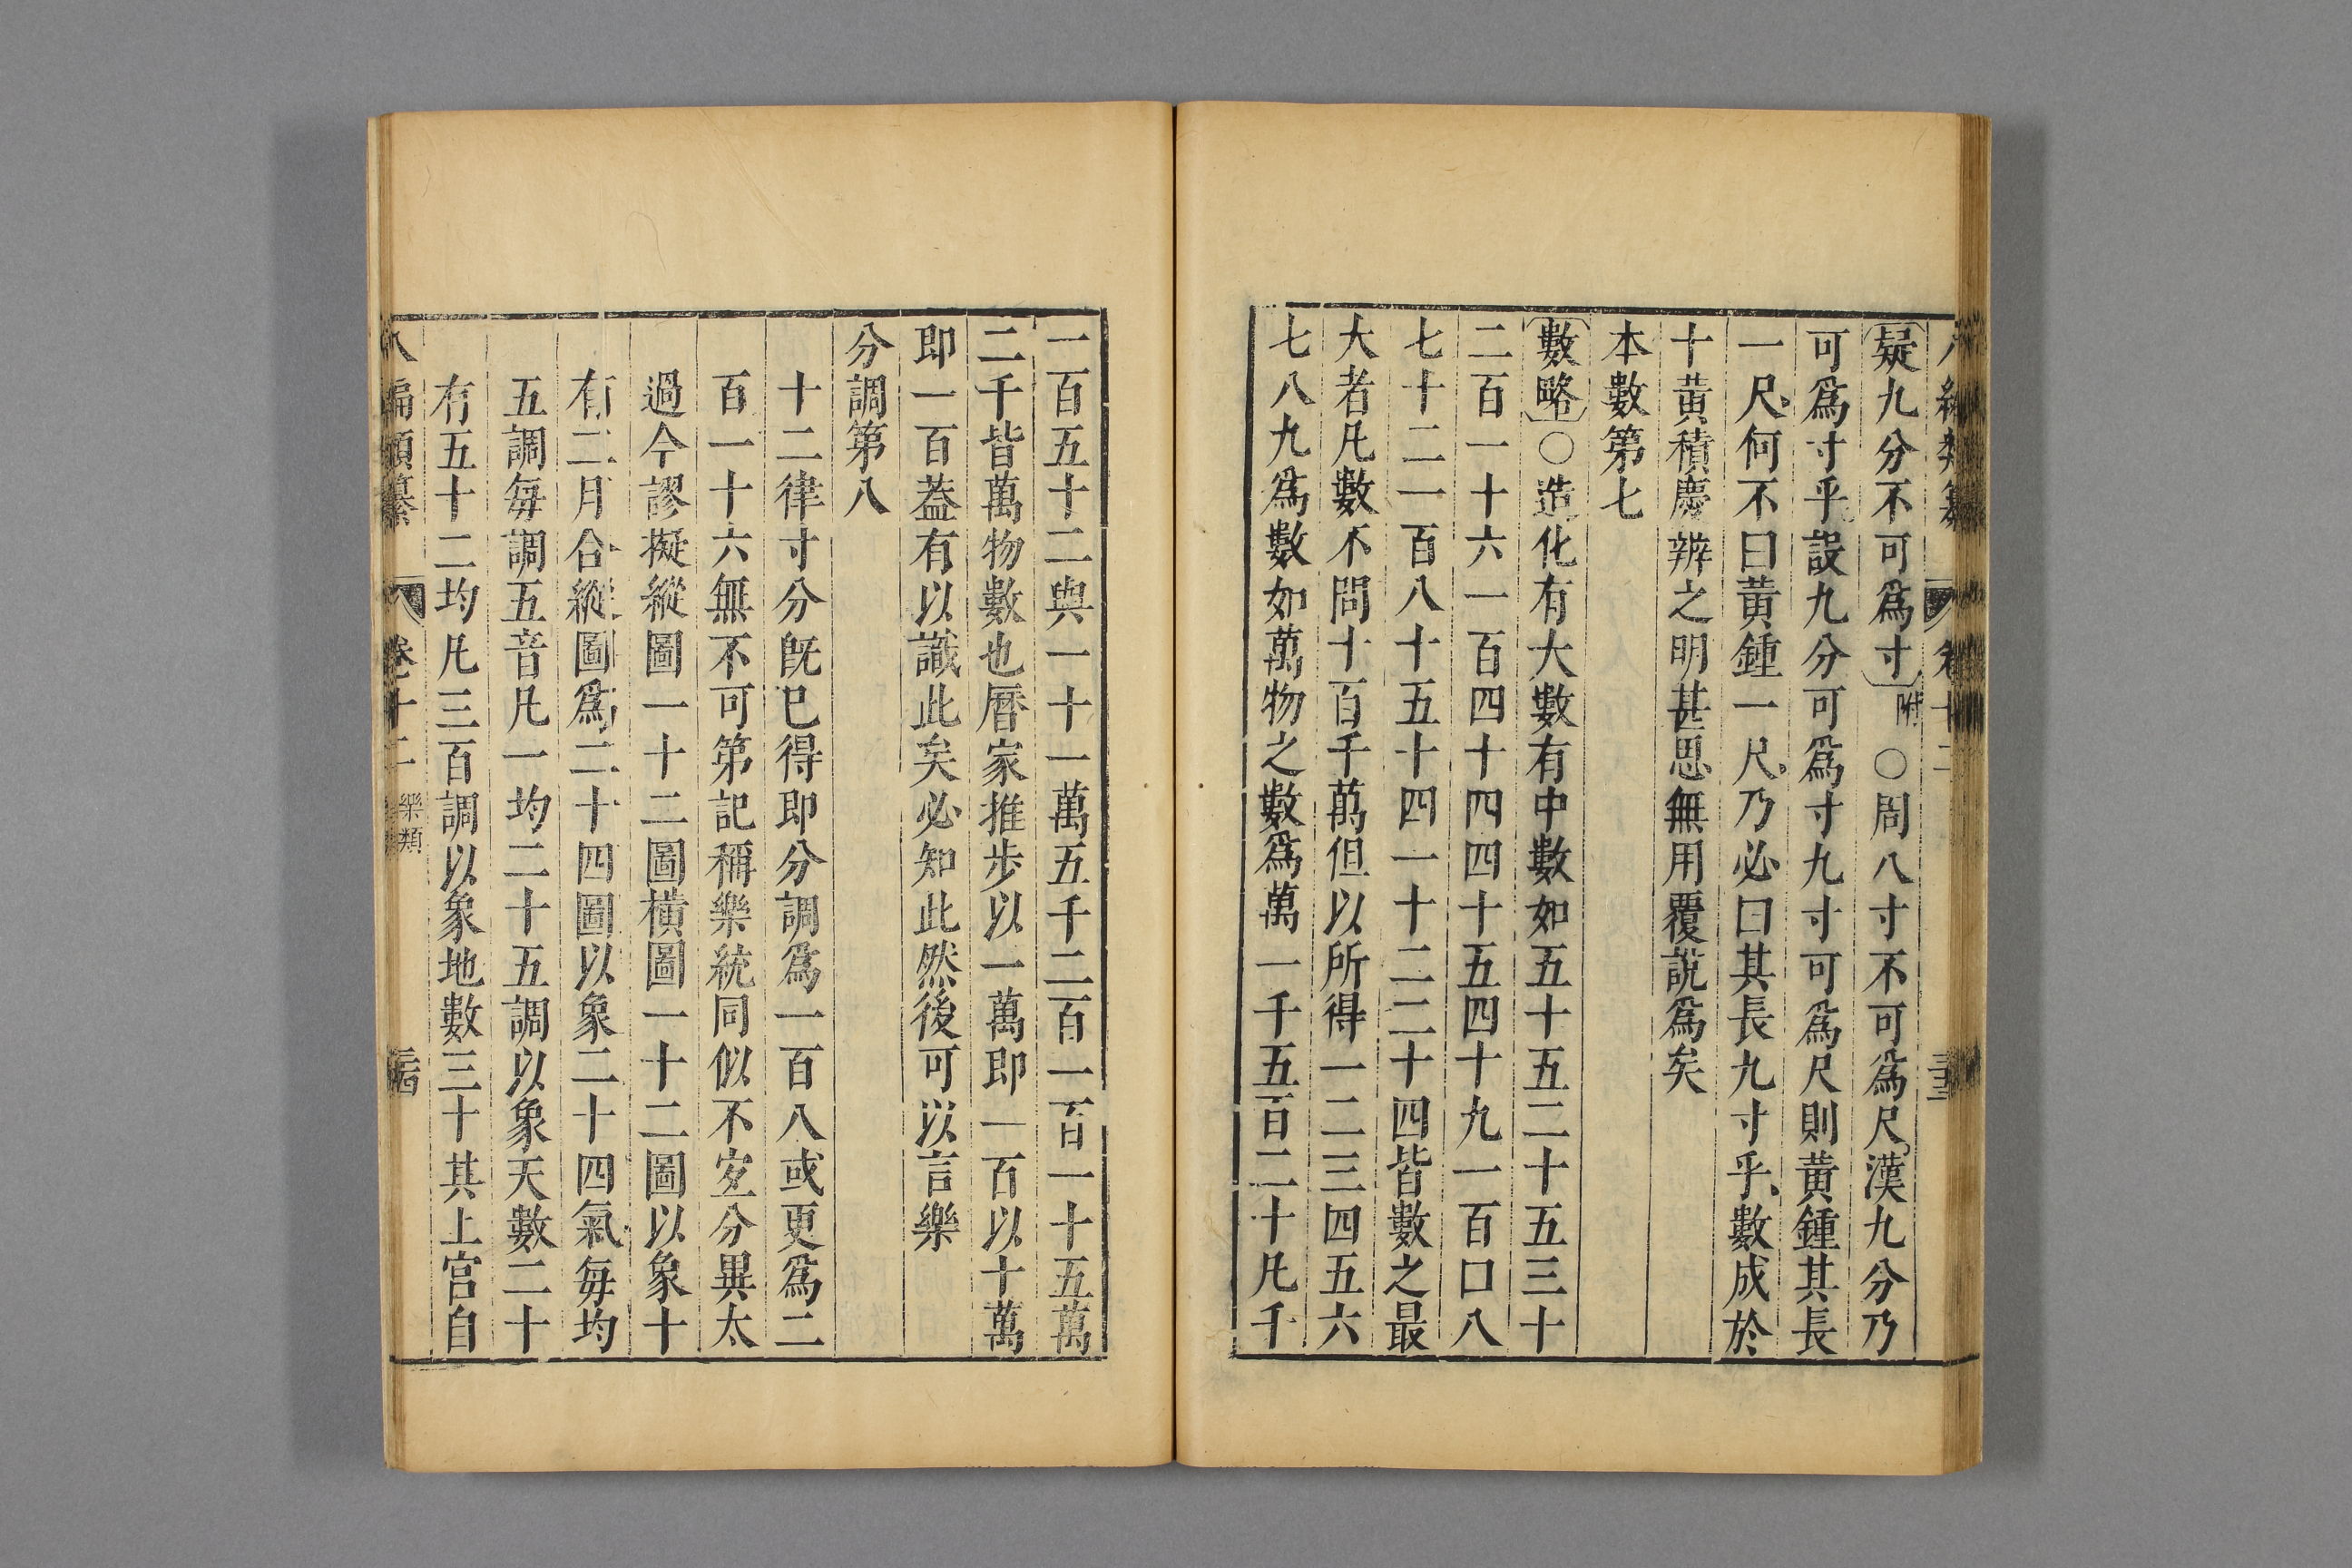 八編類纂 卷十二 三十三
疑九分不可爲寸附○周八寸不可爲尺漢九分乃
可爲寸乎設九分可爲寸九寸可爲尺則黃鍾其長
一尺何不曰黃鍾一尺乃必曰其長九寸乎數成於
十黃積慶辨之明甚思無用覆說爲矣
本數第七
數略○造化有大數有中數如五十五二十五三十
二百一十六一百四十四四十五四十九一百口八
七十二一百八十五十四一十二二十四皆數之最
大者凡數不問十百千萬但以所得一二三四五六
七八九爲數如萬物之數爲萬一千五百二十凡千
一百五十二與一十一萬五千二百一百一十五萬
二千皆萬物數也曆家推步以一萬卽一百以十萬
卽一百蓋有以識此矣必知此然後可以言樂
分調第八
十二律寸分旣已得卽分調爲一百八或更爲二
百一十六無不可第記稱樂統同似不宜分異太
過今謬擬縱圖一十二圖橫圖一十二圖以象十
有二月合縱圖爲二十四圖以象二十四氣每均
五調每調五音凡一均二十五調以象天數二十
有五十二均凡三百調以象地數三十其上宮自
八編類纂 卷十二 樂類 三十四